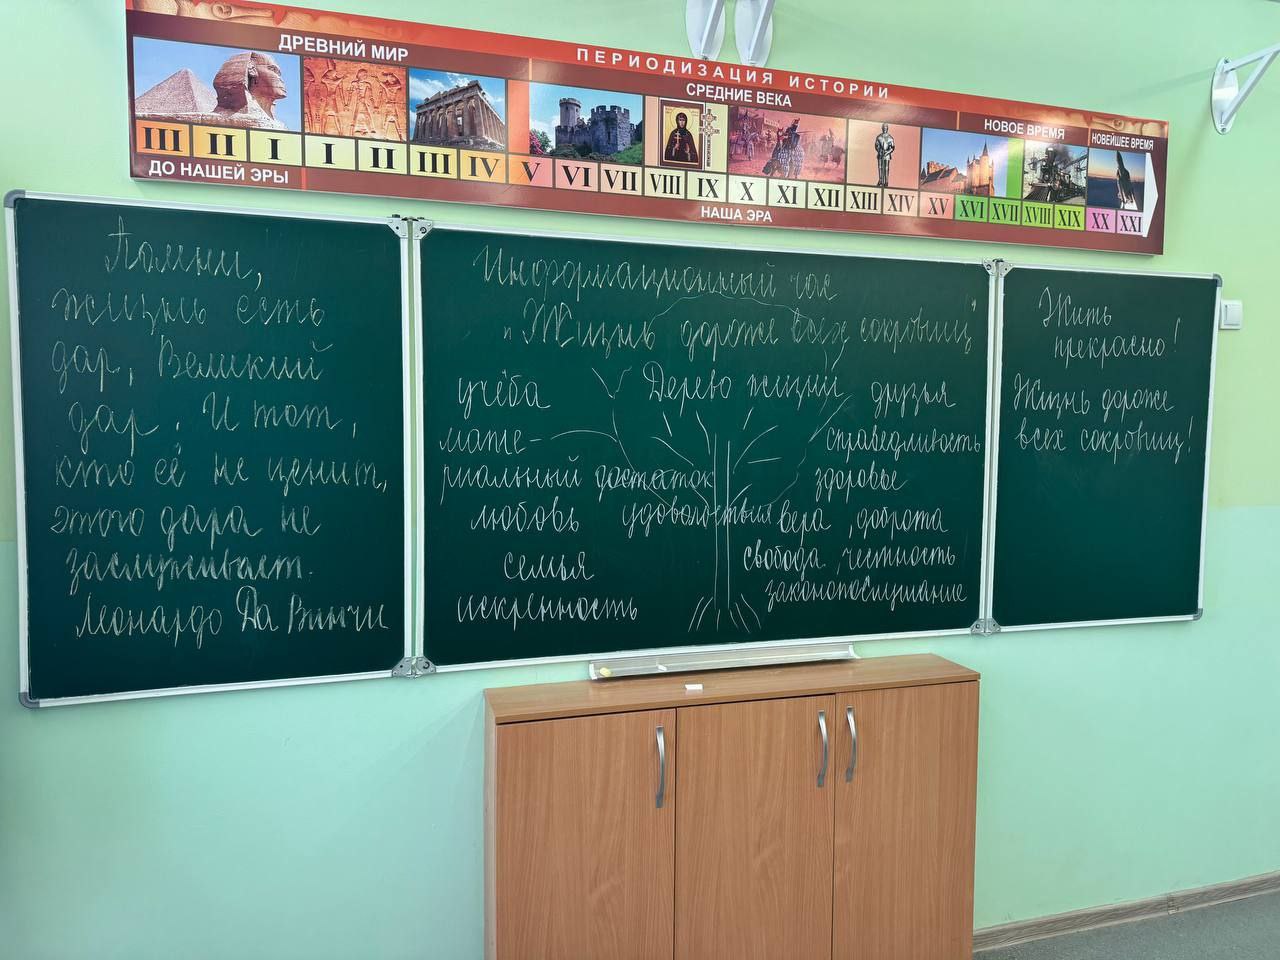 ПЕРИОДИЗАЦИЯ ИСТОРИИ
ДРЕВНИЙ МИР
СРЕДНИЕ ВЕКА
НОВОЕ ВРЕМЯ
НОВЕЙШЕЕ ВРЕМЯ
III II I I II III IV V VI VII VIII IX X XI XII XIII XIV XV XVI XVII XVIII XIX XX XXI
ДО НАШЕЙ ЭРЫ
НАША ЭРА
Помни,
жизнь есть
дар, Великий
дар. И тот,
кто её не ценит,
этого дара не
заслуживает.
Леонардо Да Винчи
Информационный час
„Жизнь дороже всех сокровищ"
Дерево жизни
учёба
мате-
риальный достаток
любовь
удовольствия
семья
искренность
друзья
справедливость
здоровье
вера, доброта
свобода, честность
законопослушание
Жить
прекрасно!
Жизнь дороже
всех сокровищ!